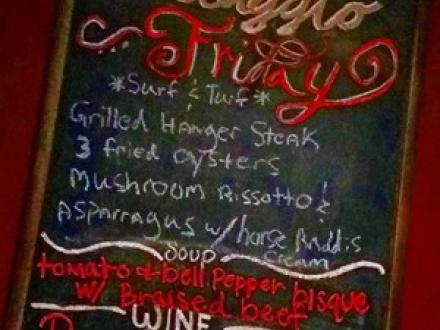 Friday
*Surf & Turf*
Grilled Hanger Steak
3 fried oysters
Mushroom Rissotto &
Asparragus w/ horse Raddis
cream
SOUP
tomato + bell pepper bisque
w/ Braised beef
WINE